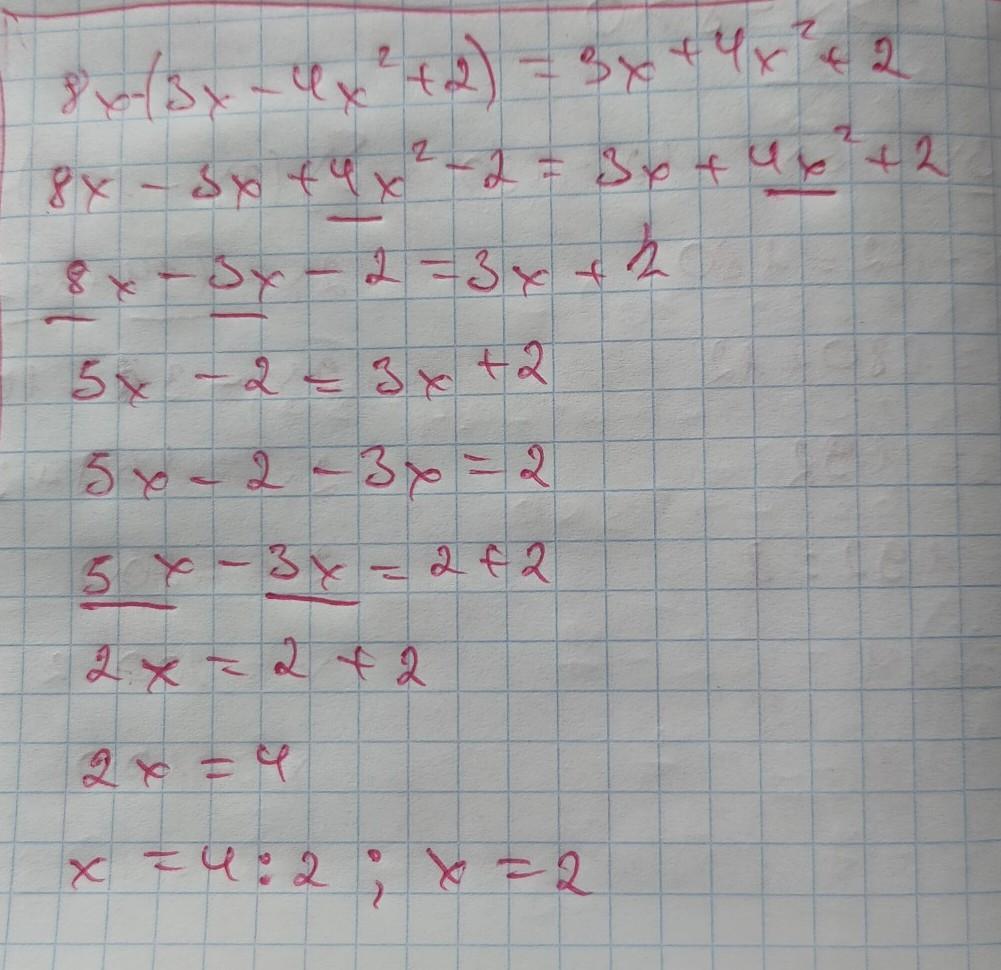 8x-(3x-4x²+2)=3x+4x²+2
8x-3x+4x²-2=3x+4x²+2
8x-3x-2=3x+2
5x-2=3x+2
5x-2-3x=2
5x-3x=2+2
2x=2+2
2x=4
x=4:2; x=2